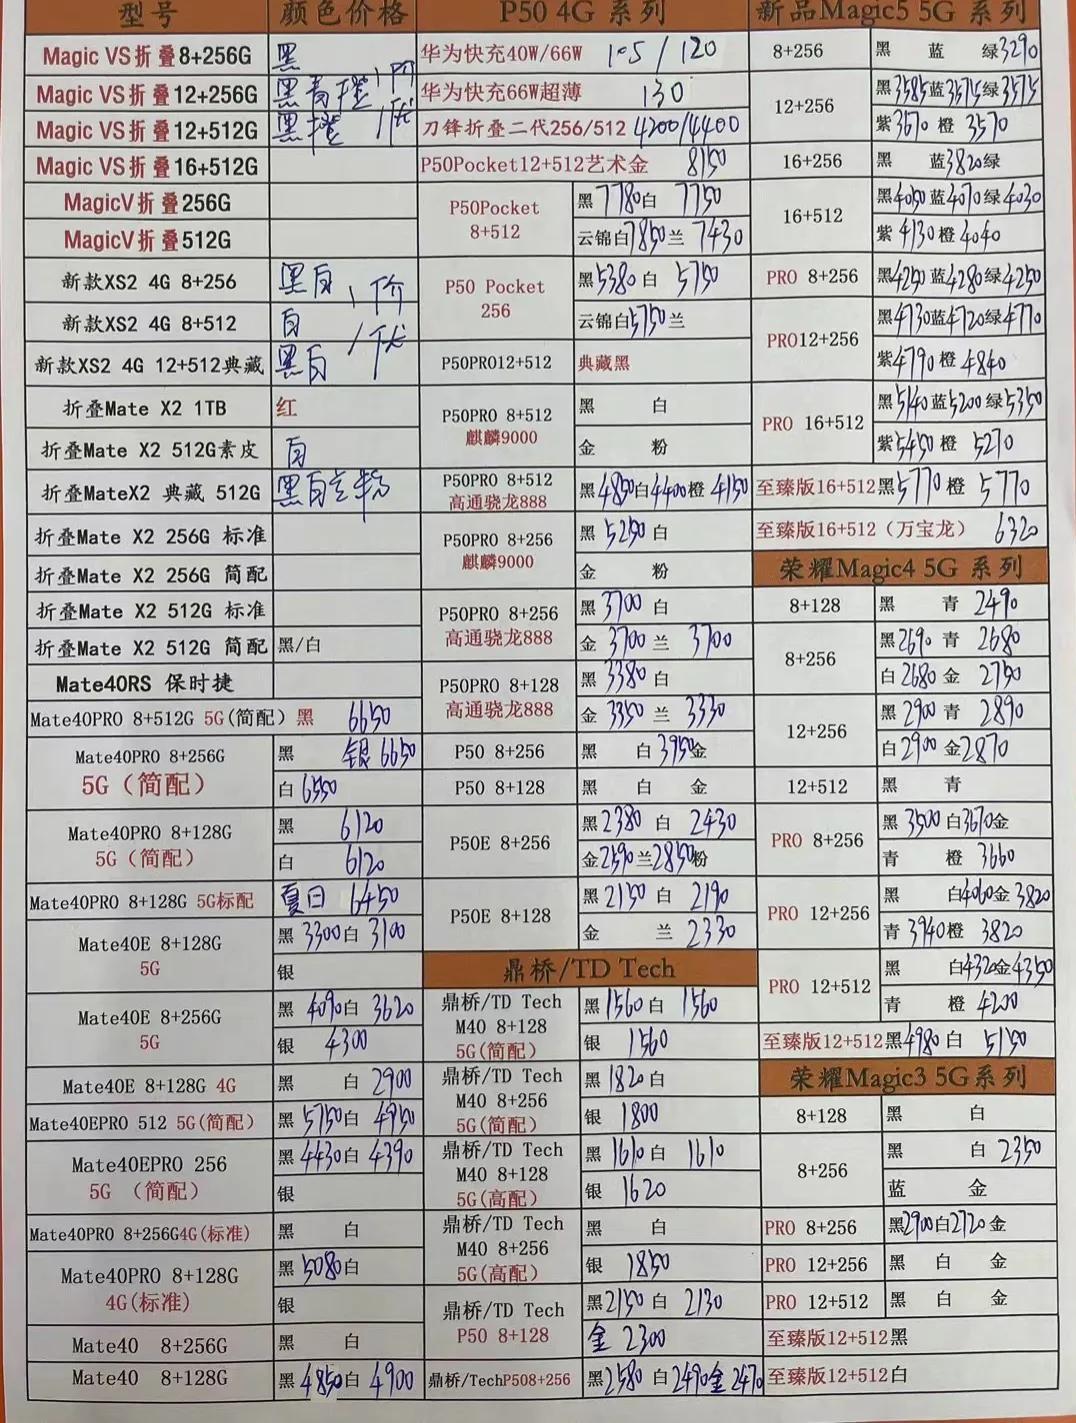 型号 颜色价格
Magic VS折叠8+256G 黑
Magic VS折叠12+256G 黑青橙
Magic VS折叠12+512G 黑橙
Magic VS折叠16+512G
MagicV折叠256G
MagicV折叠512G
新款XS2 4G 8+256 黑白
新款XS2 4G 8+512 白
新款XS2 4G 12+512典藏 黑白
折叠Mate X2 1TB 红
折叠Mate X2 512G素皮 白
折叠MateX2 典藏 512G 黑白
折叠Mate X2 256G 标准
折叠Mate X2 256G 简配
折叠Mate X2 512G 标准
折叠Mate X2 512G 简配 黑/白
Mate40RS 保时捷
Mate40PRO 8+512G 5G(简配) 黑 6650
Mate40PRO 8+256G
5G(简配)
黑 银 6650
白 6550
Mate40PRO 8+128G
5G(简配)
黑 6120
白 6120
Mate40PRO 8+128G 5G标配 夏日 6450
Mate40E 8+128G
5G
黑 3300 白 3100
银
Mate40E 8+256G
5G
黑 4090 白 3620
银 4300
Mate40E 8+128G 4G 黑 白 2900
Mate40EPRO 512 5G(简配) 黑 5750 白 4950
Mate40EPRO 256
5G (简配)
黑 4430 白 4390
银
Mate40PRO 8+256G4G(标准) 黑 白
Mate40PRO 8+128G
4G(标准)
黑 5080 白
银
Mate40 8+256G 黑 白
Mate40 8+128G 黑 4850 白 4900
P50 4G 系列
华为快充40W/66W 105/120
华为快充66W超薄 130
刀锋折叠二代256/512 4200/4400
P50Pocket12+512艺术金 8150
P50Pocket
8+512
黑 7780 白 7750
云锦白 7850 兰 7430
P50 Pocket
256
黑 5380 白 5750
云锦白 5750 兰
P50PRO12+512 典藏黑
P50PRO 8+512
麒麟9000
黑 白
金 粉
P50PRO 8+512
高通骁龙888
黑 4850 白 4400 橙 4150
P50PRO 8+256
麒麟9000
黑 5250 白
金 粉
P50PRO 8+256
高通骁龙888
黑 3700 白
金 3700 兰 3700
P50PRO 8+128
高通骁龙888
黑 3380 白
金 3350 兰 3330
P50 8+256 黑 白 3950 金
P50 8+128 黑 白 金
P50E 8+256
黑 2380 白 2430
金 2590 兰 2850 粉
P50E 8+128
黑 2150 白 2190
金 兰 2330
鼎桥/TD Tech
鼎桥/TD Tech
M40 8+128
5G(简配)
黑 1560 白 1560
银 1560
鼎桥/TD Tech
M40 8+256
5G(简配)
黑 1820 白
银 1800
鼎桥/TD Tech
M40 8+128
5G(高配)
黑 1610 白 1610
银 1620
鼎桥/TD Tech
M40 8+256
5G(高配)
黑 白
银 1850
鼎桥/TD Tech
P50 8+128
黑 2150 白 2130
金 2300
鼎桥/TechP508+256 黑 2580 白 2490 金 2470
新品Magic5 5G 系列
8+256 黑 蓝 绿 3290
12+256
黑 3585 蓝 3575 绿 3575
紫 3670 橙 3570
16+256 黑 蓝 3820 绿
16+512
黑 4050 蓝 4070 绿 4030
紫 4130 橙 4040
PRO 8+256 黑 4250 蓝 4280 绿 4250
PRO12+256
黑 4730 蓝 4720 绿 4770
紫 4790 橙 4840
PRO 16+512
黑 5140 蓝 5200 绿 5350
紫 5450 橙 5270
至臻版16+512 黑 5770 橙 5770
至臻版16+512(万宝龙) 6320
荣耀Magic4 5G 系列
8+128 黑 青 2490
8+256
黑 2690 青 2680
白 2680 金 2750
12+256
黑 2900 青 2890
白 2900 金 2870
12+512 黑 青
PRO 8+256
黑 3500 白 3670 金
青 橙 3660
PRO 12+256
黑 白 4060 金 3820
青 3940 橙 3820
PRO 12+512
黑 白 4320 金 4350
青 橙 4200
至臻版12+512 黑 4980 白 5150
荣耀Magic3 5G系列
8+128 黑 白
8+256
黑 白 2350
蓝 金
PRO 8+256 黑 2900 白 2720 金
PRO 12+256 黑 白 金
PRO 12+512 黑 白 金
至臻版12+512黑
至臻版12+512白